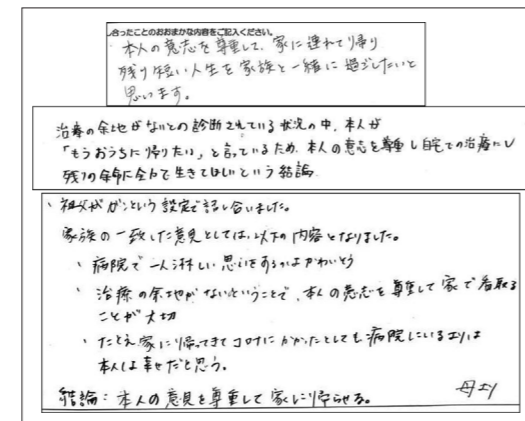 合ったことのおおまかな内容をご記入ください。
本人の意志を尊重して、家に連れて帰り
残り短い人生を家族と一緒に過ごしたいと
思います。
治療の余地がないとの診断されている状況の中、本人が
「もうおうちに帰りたい」と言っているため、本人の意志を尊重し自宅での治療にし
残りの余命に全力で生きてほしいという結論
・祖父ががんという設定で話し合いました。
家族の一致した意見としては、以下の内容となりました。
・病院で一人淋しい思いをするのはかわいそう
・治療の余地がないということで、本人の意志を尊重して家で看取る
ことが大切
・たとえ家に帰ってきてコロナにかかったとしても病院にいるより
本人は幸せだと思う。
結論：本人の意見を尊重して家に帰らせる。
母より